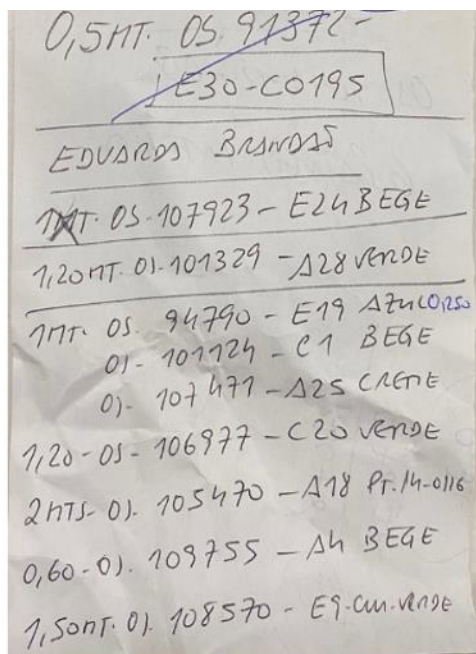 0,5MT. OS. 91372-
E30-C0195
EDUARDA BRANDAÕ
1MT. OS-107923-E24 BEGE
1,20MT. OS-101329-A28 VERDE
1MT. OS. 94790-E19 AZUL 0,250
OS-101124-C1 BEGE
OS-107471-A25 CREME
1,20-OS-106977-C20 VERDE
2MTS-OS. 105470-A18 PT.14-0116
0,60-OS. 109755-A4 BEGE
1,50MT. OS. 108570-E9-CM.VERDE